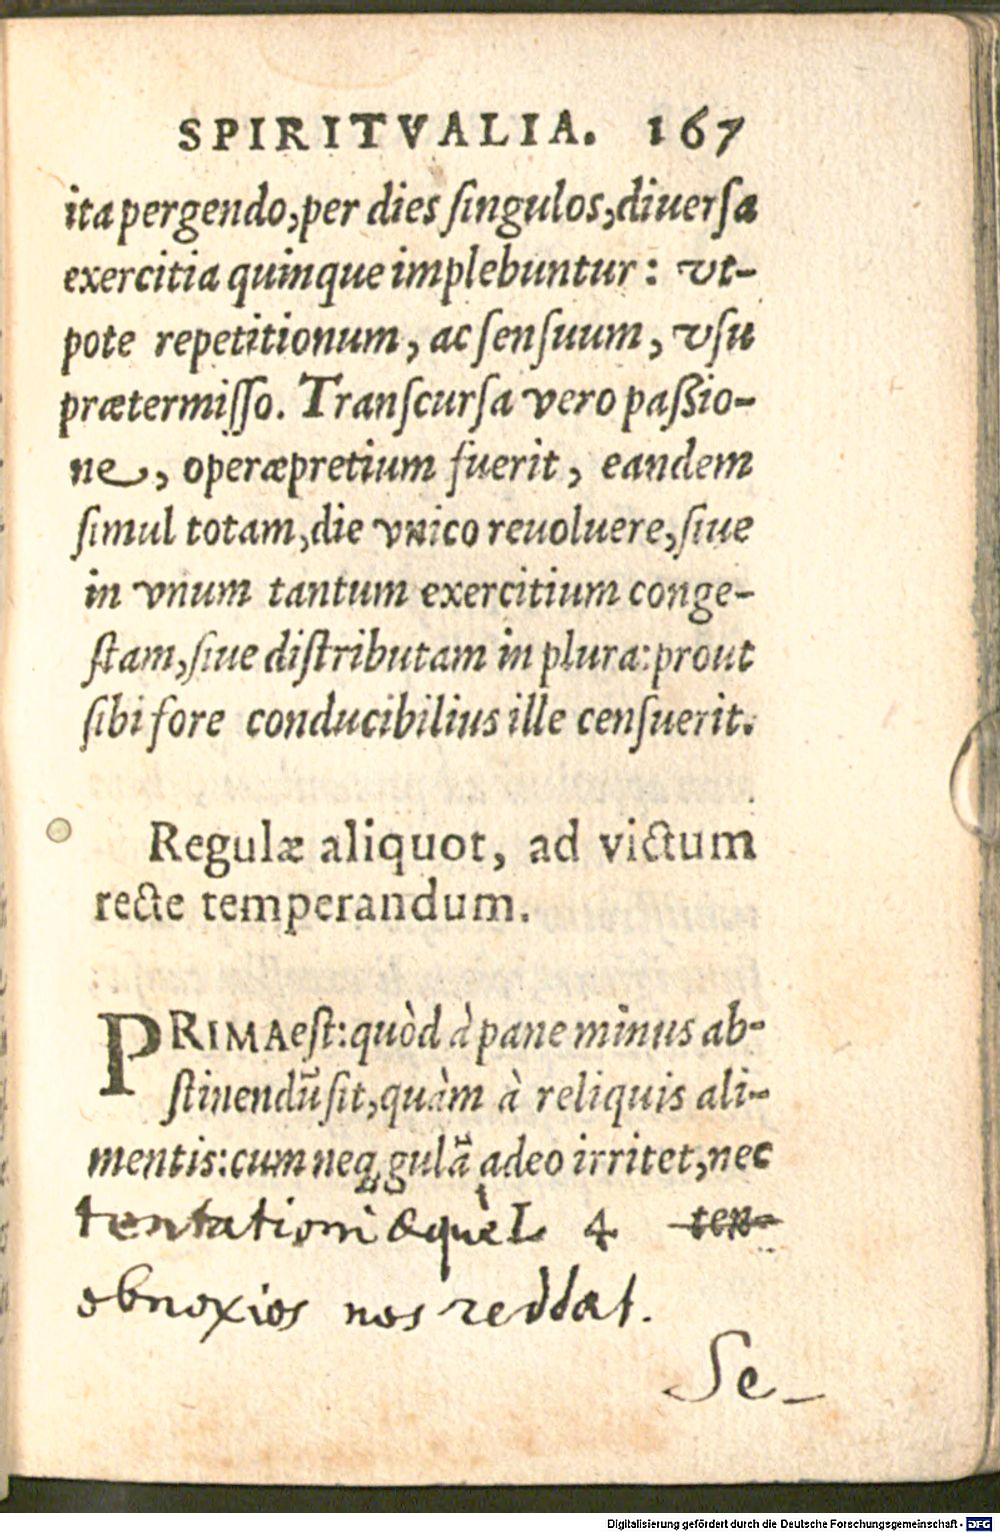 SPIRITVALIA. 167
ita pergendo, per dies ſingulos, diuerſa
exercitia quinque implebuntur: vt-
pote repetitionum, ac ſenſuum, vſu
prætermiſſo. Tranſcurſa vero paßio-
ne, operæpretium fuerit, eandem
ſimul totam, die vnico reuoluere, ſiue
in vnum tantum exercitium conge-
ſtam, ſiue diſtributam in plura: prout
ſibi fore conducibilius ille cenſuerit.
Regulæ aliquot, ad victum
recte temperandum.
PRIMA eſt: quòd à pane minus ab-
ſtinendũ ſit, quàm à reliquis ali-
mentis: cum neq; gulã adeo irritet, nec
tentationi æquè L 4 ten-
obnoxios nos reddat.
Se-
Digitalisierung gefördert durch die Deutsche Forschungsgemeinschaft - DFG